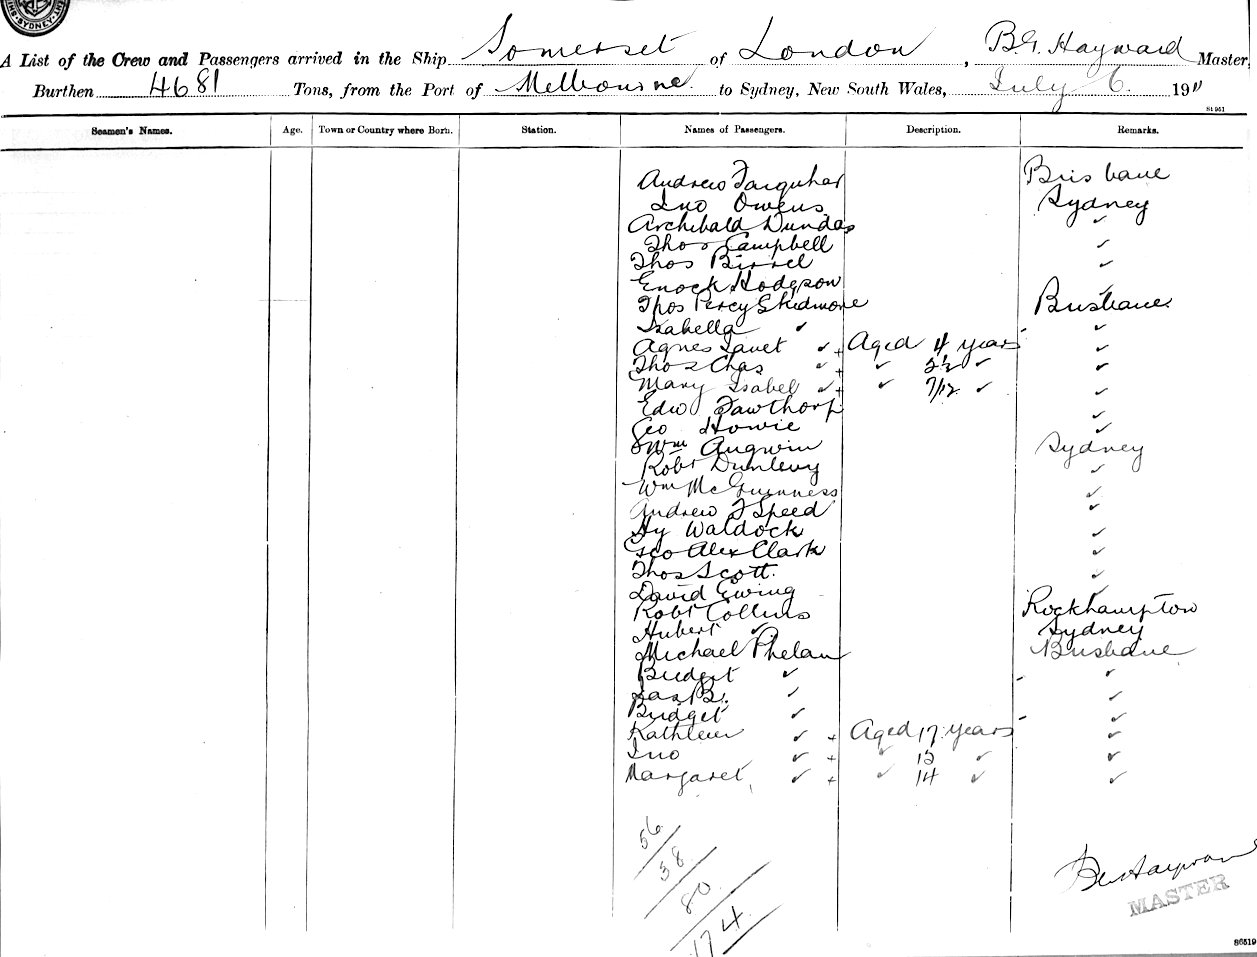 SYDNEY
A List of the Crew and Passengers arrived in the Ship Somerset of London, B.G. Hayward Master,
Burthen 4681 Tons, from the Port of Melbourne to Sydney, New South Wales, July 6. 1911
St 951
Seamen's Names. Age. Town or Country where Born. Station. Names of Passengers. Description. Remarks.
Andrew Farquhar Brisbane
Jno Owens Sydney
Archibald Dundas ✓
Thos Campbell ✓
Thos Birrel ✓
Enock Hodgson ✓
Thos Percy Skidmore Brisbane
Isabella ✓ ✓
Agnes Janet ✓ + Aged 4 years ✓
Thos Chas ✓ + ✓ 2½ ✓ ✓
Mary Isabel ✓ + ✓ 7/12 ✓ ✓
Edw Fawthorp ✓
Geo Howie ✓
Wm Angwin Sydney
Robt Dunlevy ✓
Wm McGuinness ✓
Andrew F Speed ✓
Hy Waldock ✓
Geo Alex Clark ✓
Thos Scott ✓
David Ewing ✓
Robt Collins Rockhampton
Hubert ✓ Sydney
Michael Phelan Brisbane
Bridget ✓ ✓
Jas B. ✓ ✓
Bridget ✓ ✓
Kathleen ✓ + Aged 17 years ✓
Jno ✓ + ✓ ✓ ✓
Margaret ✓ + ✓ 14 ✓ ✓
56
38
80
174
Hayward
MASTER
S6519